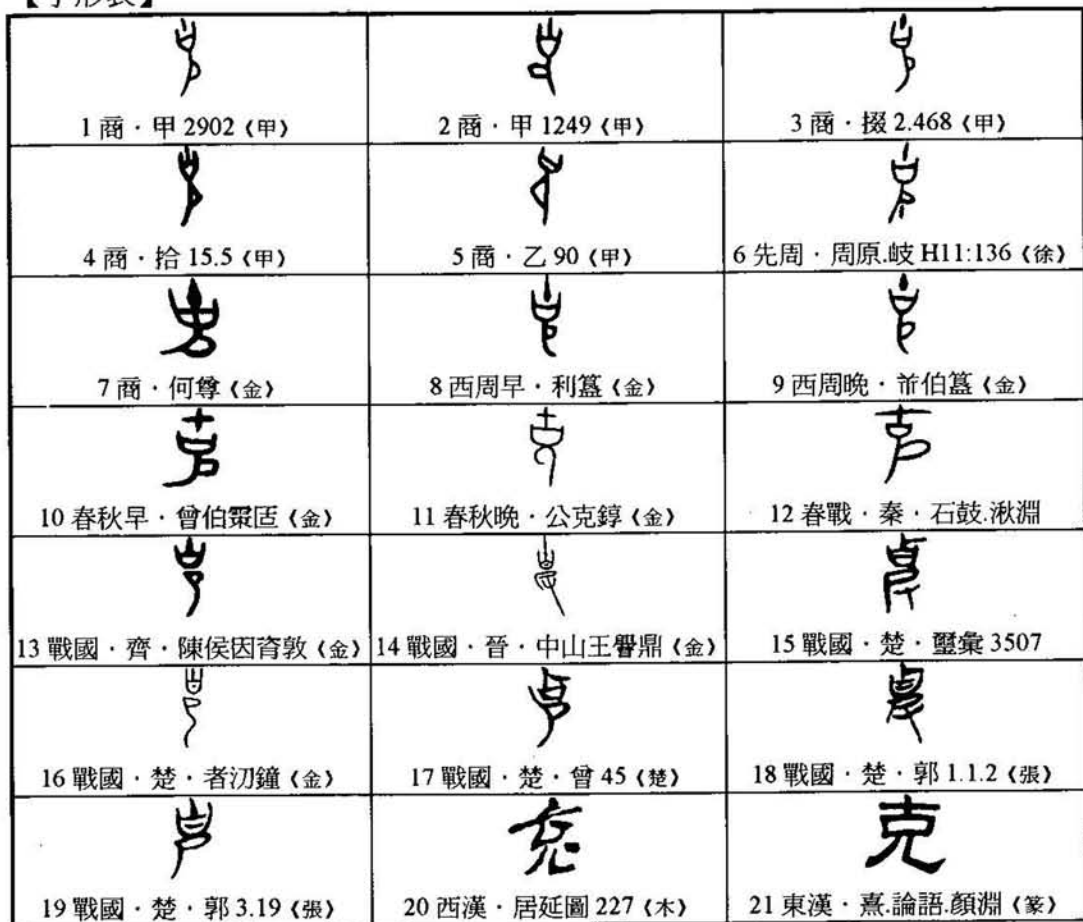 【字形表】
1 商·甲 2902《甲》 2 商·甲 1249《甲》 3 商·掇 2.468《甲》
4 商·拾 15.5《甲》 5 商·乙 90《甲》 6 先周·周原.岐 H11:136《徐》
7 商·何尊《金》 8 西周早·利簋《金》 9 西周晚·芇伯簋《金》
10 春秋早·曾伯霥匜《金》 11 春秋晚·公克錞《金》 12 春戰·秦·石鼓.湫淵
13 戰國·齊·陳侯因𬁼敦《金》 14 戰國·晉·中山王譽鼎《金》 15 戰國·楚·璽彙 3507
16 戰國·楚·者汈鐘《金》 17 戰國·楚·曾 45《楚》 18 戰國·楚·郭 1.1.2《張》
19 戰國·楚·郭 3.19《張》 20 西漢·居延圖 227《木》 21 東漢·熹.論語.顏淵《篆》
克